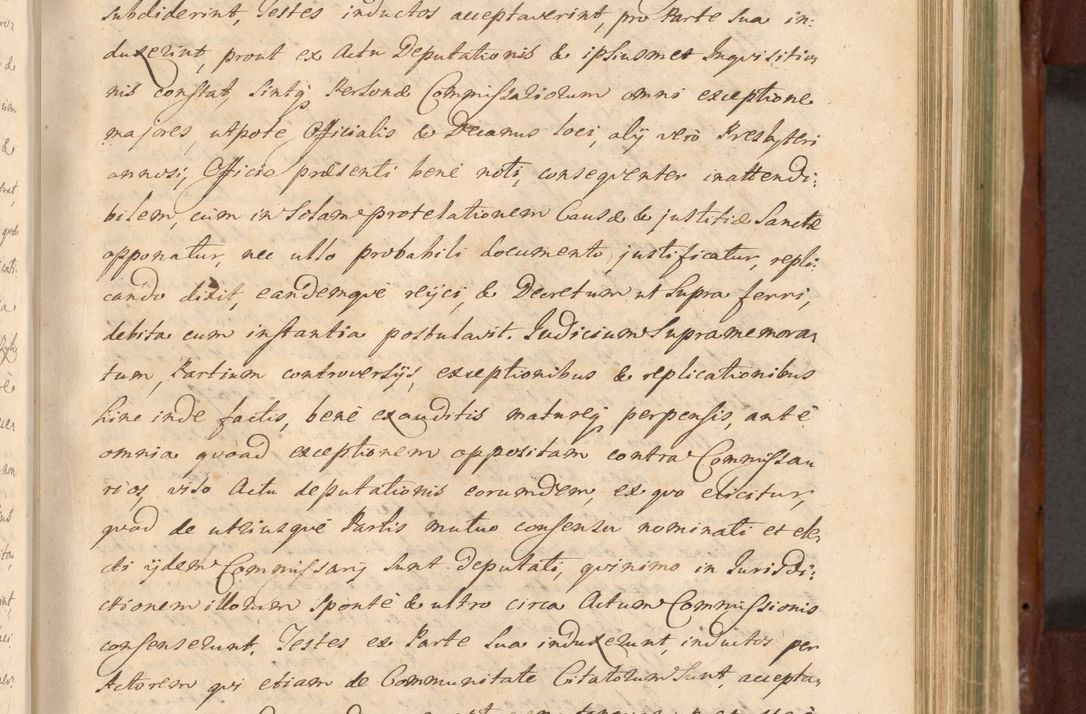 subdiderint, Testes inductos acceptaverint, pro Parte sua in:
duxerint, prout ex Actu Deputationis & ipsiusmet Inquisitio
nis constat, sintq Personæ Commissariorum omni exceptione
majores, utpote Officialis & Decanus loci, alij verò Presbyteri
annosi, Officio præsenti benè noti, consequenter inattendi:
bilem, cum in solam protelationem Causæ & justitiæ Sanctæ
opponatur, nec ullo probabili documento justificatur, repli:
cando dixit, eandemque rejici, & Decretum ut supra ferri,
debita cum instantia postulavit. Judicium supramemora,
tum, Partium controversijs, exceptionibus & replicationibus
hinc inde factis, benè exauditis matureq perpensis, antè
omnia quoad exceptionem oppositam contra Commissa
rios, viso Actu deputationis eorumdem, ex quo elicitur,
quod de utriusquè Partis mutuo consensu nominati et ele,
cti ijdem Commissarij sunt deputati, quinimo in Jurisdi:
ctionem illorum spontè & ultro circa Actum Commissionis
consenserunt. Testes ex Parte sua induxerunt, inductos per
Actorem qui etiam de Communitate Citatorum sunt, accepta,